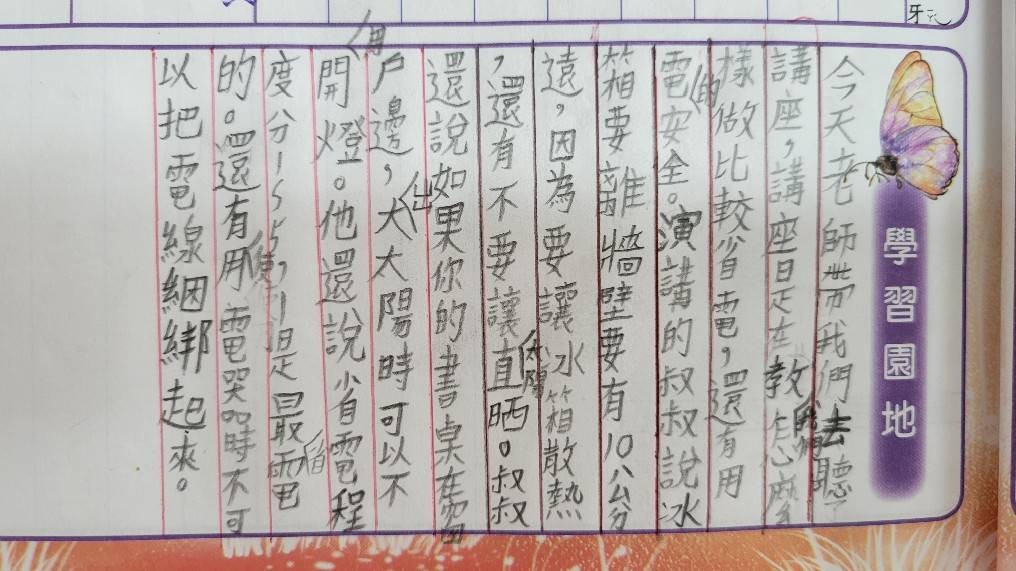 牙
學習園地
今天老師帶我們去聽
講座，講座是在教我們怎麼
樣做比較省電，還有用
電的安全。演講的叔叔說冰
箱要離牆壁要有10公分
遠，因為要讓冰箱散熱
，還有不要讓太陽直晒。叔叔
還說如果你的書桌在窗
戶邊，出大太陽時可以不
用開燈。他還說省電程
度分1~5，1是最省電
的。還有使用電器時不可
以把電線綑綁起來。